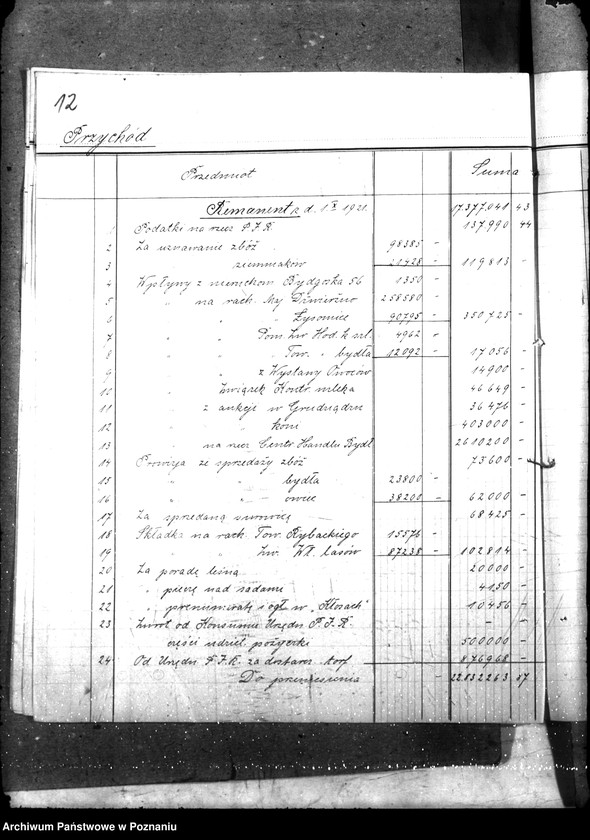 12
Przychód
Przedmiot Suma
Remanent z d. 1 X 1921. 17377041 43
1 Podatki na rzecz P.I.R. 137990 44
2 Za uznawanie zbóż 98385 -
3 " ziemniaków 21428 - 119813 -
4 Wpływy z Bydgoska 56 1350 -
5 " na rach. Maj. Dźwierzno 258580 -
6 " " Łysomice 90795 - 350725 -
7 " " Pom. Zw. Hod. k 4962 -
8 " " Tow. " bydła 12092 - 17056 -
9 " z Wystawy Owoców 14900 -
10 " Związek Kontr. mleka 46649 -
11 " z aukcji w Grudziądzu 36476 -
12 " " koni 403000 -
13 " na rzecz Centr. Handlu Bydł. 2610200 -
14 Prowizja ze sprzedaży zbóż 73600 -
15 " " bydła 23800 -
16 " " owiec 38200 - 62000 -
17 Za sprzedaną surowicę 68425 -
18 Składka na rach. Tow. Rybackiego 15576 -
19 " " Zw. Wł. lasów 87238 - 102814 -
20 Za poradę leśną 20000 -
21 " pieczę nad sadami 4150 -
22 " prenumeratę i ogł. w "Kłosach" 10456 -
23 Zwrot od Konsumu Urzędn. P.I.R. - -
części udziel. pożyczki 500000 -
24 Od Urzędn. P.I.R. za dostarcz. torf 876968 -
Do przeniesienia 22832263 87
Archiwum Państwowe w Poznaniu